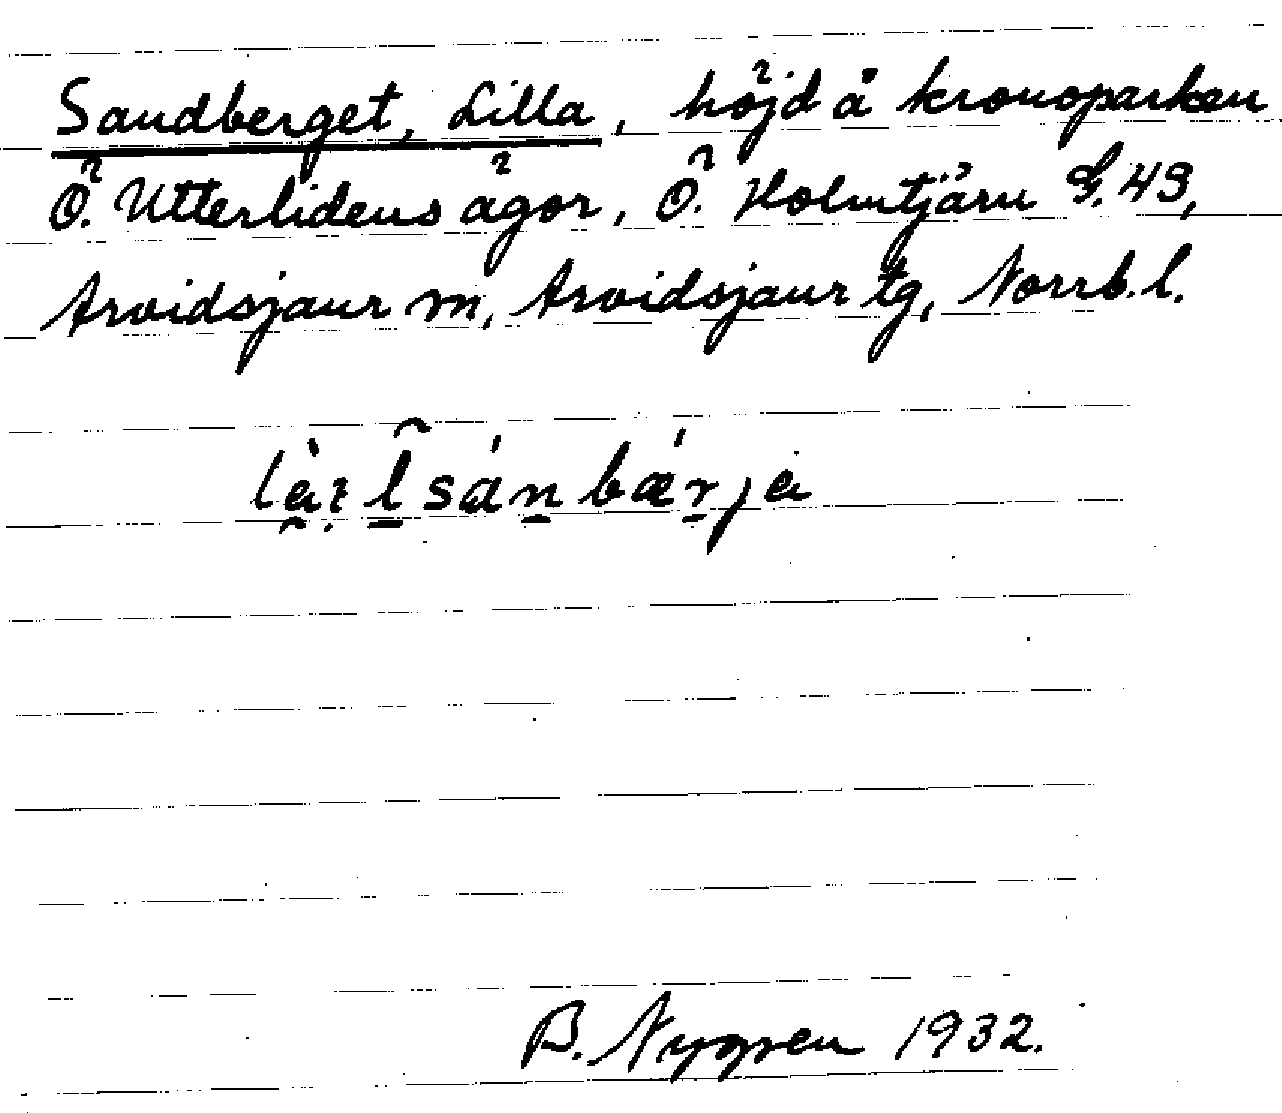 Sandberget, Lilla, höjd å kronoparken
Ö. Utterlidens ägor, Ö. Holmtjärn G. 49,
Arvidsjaur sn, Arvidsjaur tg, Norrb. l.
B. Nygren 1932.